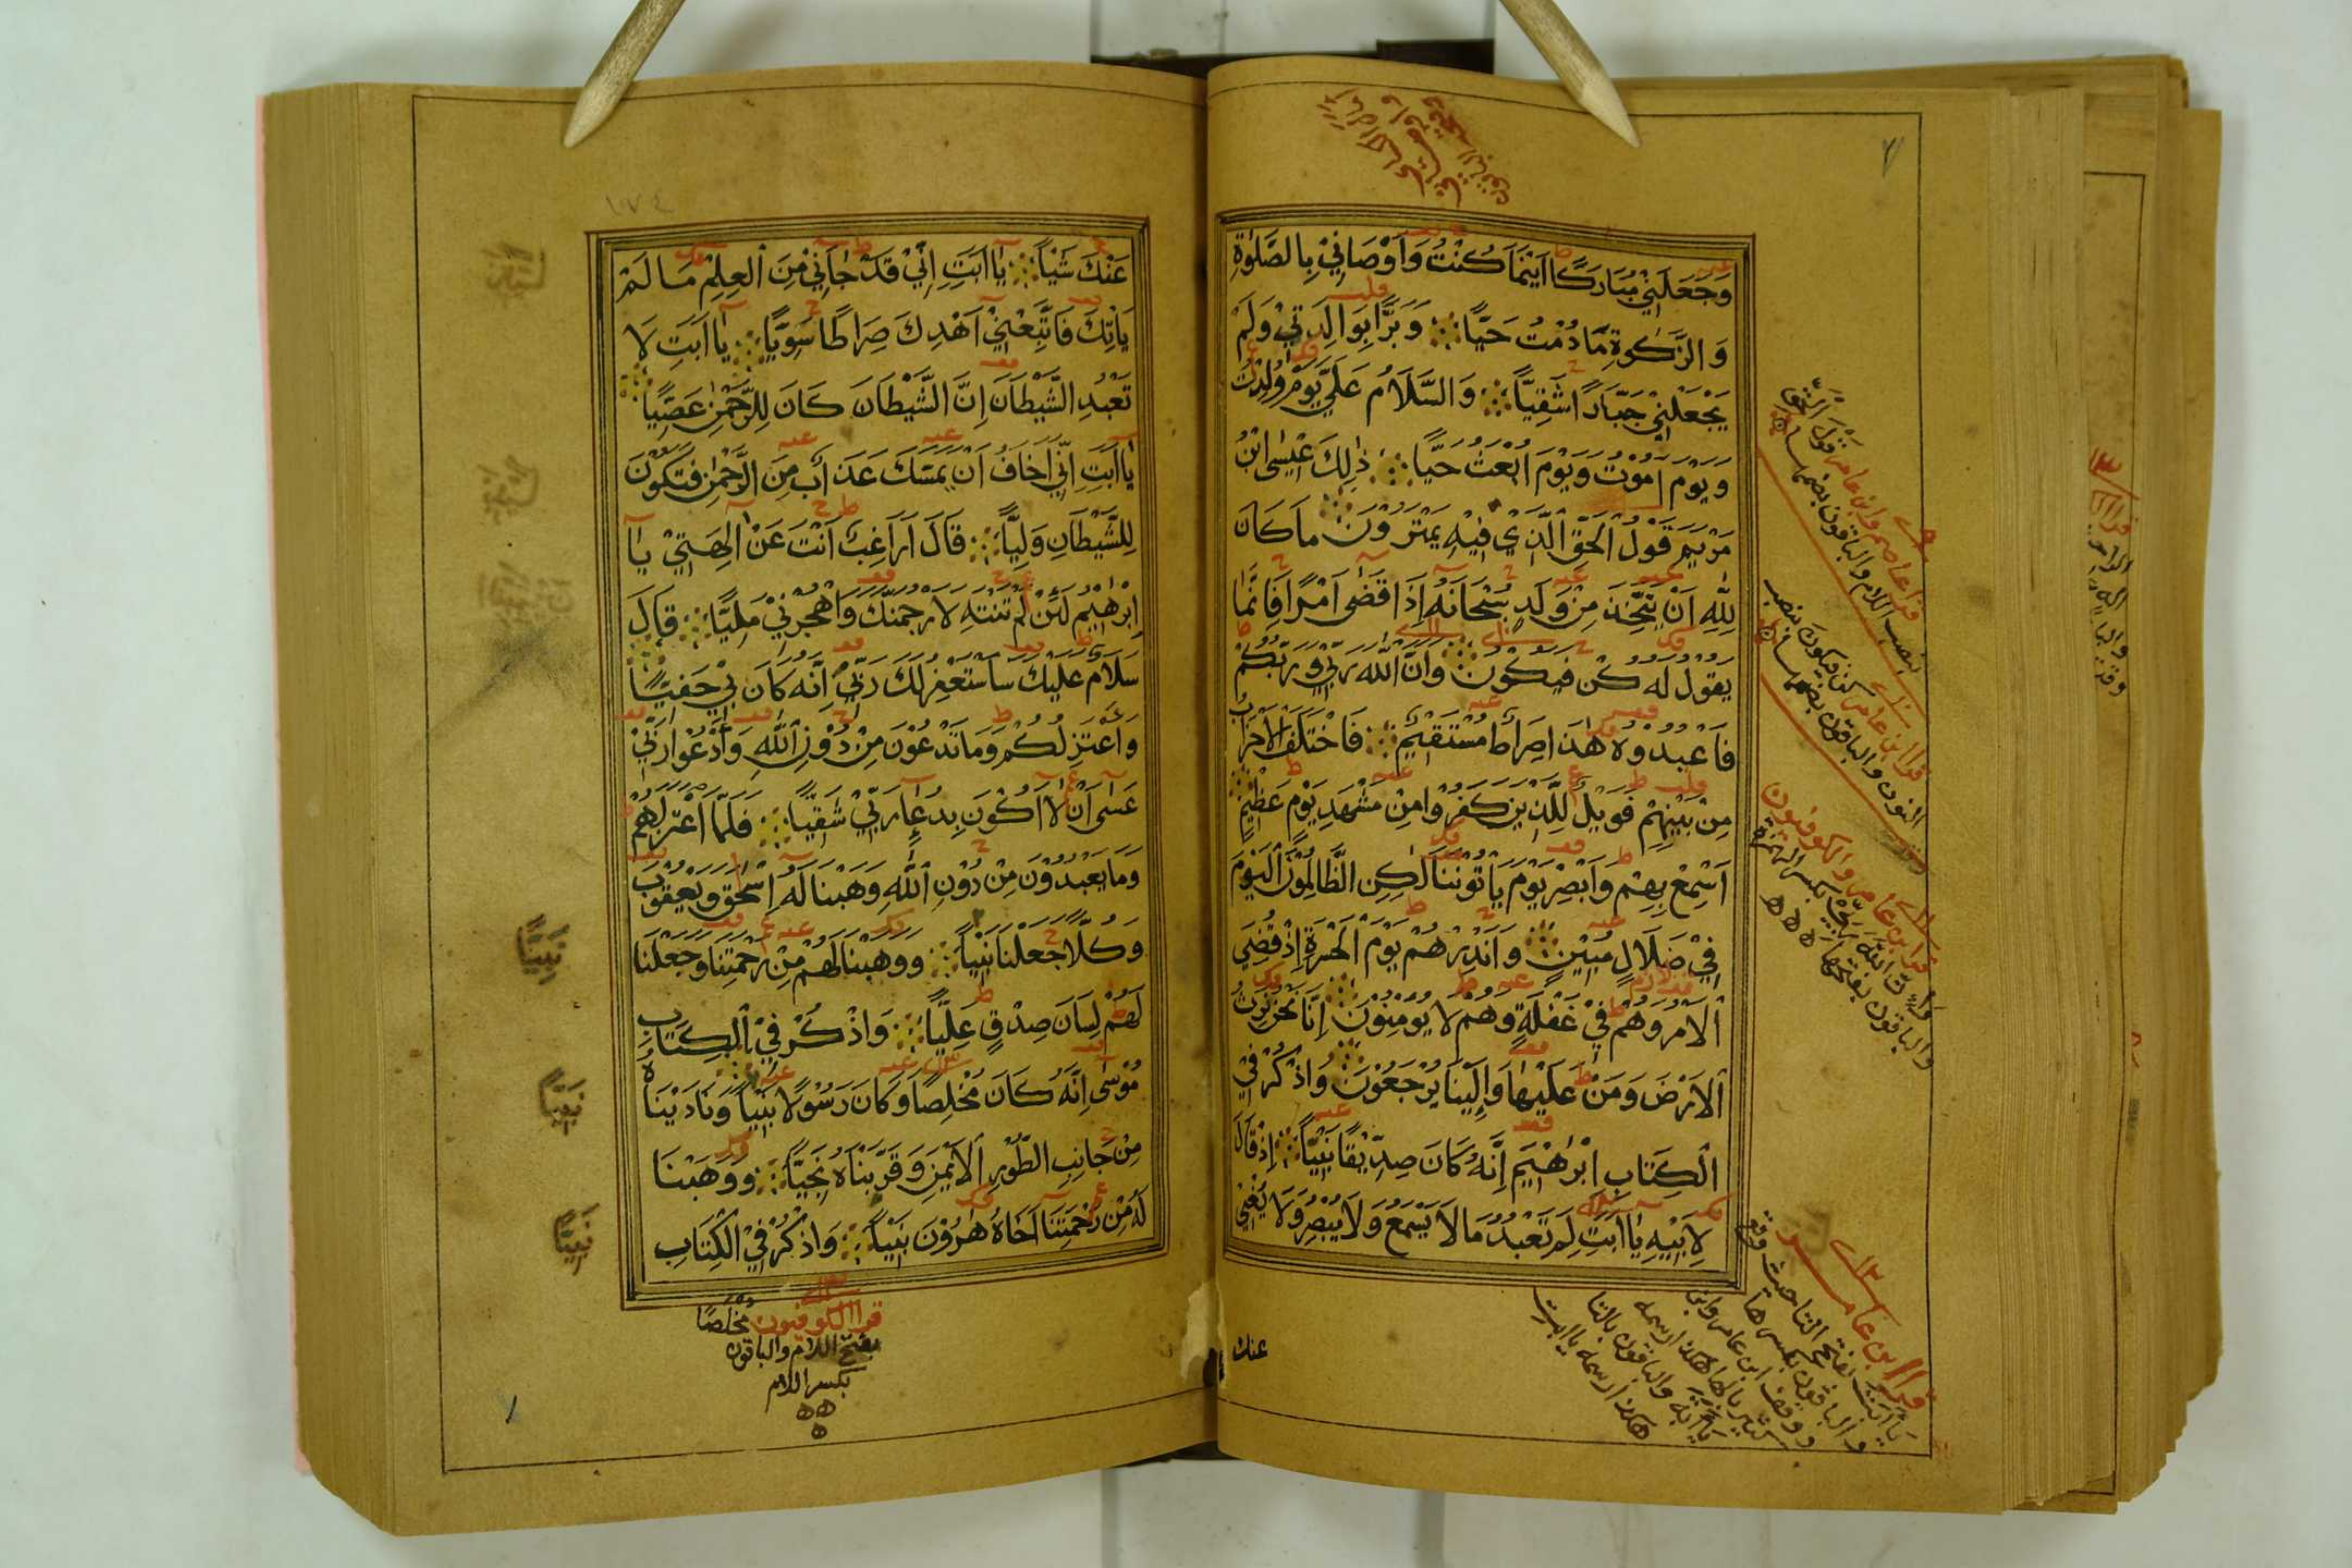 وَجَعَلَنِيْ مُبَارَكًا اَيْنَمَا كُنْتُ وَاَوْصَانِيْ بِالصَّلٰوةِ
وَالزَّكٰوةِ مَا دُمْتُ حَيًّا وَبَرًّا بِوَالِدَتِيْ وَلَمْ
يَجْعَلْنِيْ جَبَّارًا شَقِيًّا وَالسَّلَامُ عَلَيَّ يَوْمَ وُلِدْتُ
وَيَوْمَ اَمُوْتُ وَيَوْمَ اُبْعَثُ حَيًّا ذٰلِكَ عِيْسَى ابْنُ
مَرْيَمَ قَوْلُ الْحَقِّ الَّذِيْ فِيْهِ يَمْتَرُوْنَ مَا كَانَ
لِلّٰهِ اَنْ يَتَّخِذَ مِنْ وَلَدٍ سُبْحَانَهُ اِذَا قَضٰى اَمْرًا فَاِنَّمَا
يَقُوْلُ لَهُ كُنْ فَيَكُوْنُ وَاَنَّ اللّٰهَ رَبِّيْ وَرَبُّكُمْ
فَاعْبُدُوْهُ هٰذَا صِرَاطٌ مُسْتَقِيْمٌ فَاخْتَلَفَ الْاَحْزَابُ
مِنْ بَيْنِهِمْ فَوَيْلٌ لِلَّذِيْنَ كَفَرُوْا مِنْ مَشْهَدِ يَوْمٍ عَظِيْمٍ
اَسْمِعْ بِهِمْ وَاَبْصِرْ يَوْمَ يَاْتُوْنَنَا لٰكِنِ الظَّالِمُوْنَ الْيَوْمَ
فِيْ ضَلَالٍ مُبِيْنٍ وَاَنْذِرْهُمْ يَوْمَ الْحَسْرَةِ اِذْ قُضِيَ
الْاَمْرُ وَهُمْ فِيْ غَفْلَةٍ وَهُمْ لَا يُؤْمِنُوْنَ اِنَّا نَحْنُ نَرِثُ
الْاَرْضَ وَمَنْ عَلَيْهَا وَاِلَيْنَا يُرْجَعُوْنَ وَاذْكُرْ فِي
الْكِتَابِ اِبْرٰهِيْمَ اِنَّهُ كَانَ صِدِّيْقًا نَبِيًّا اِذْ قَالَ
لِاَبِيْهِ يَا اَبَتِ لِمَ تَعْبُدُ مَا لَا يَسْمَعُ وَلَا يُبْصِرُ وَلَا يُغْنِيْ
عنك
قرا عاصم وابن عامر قَوْلَ الحَقِّ
بنصب اللام والباقون بضمها
قرا ابن عامر كن فيكونَ بنصب
النون والباقون بضمها
قرا ابن عامر والكوفيون
وَاِنَّ اللّٰهَ رَبِّيْ بكسر الهمزة
والباقون بفتحها
قرا ابن عامر
يَا اَبَتَ بفتح التا حيث وقع
والباقون بكسرها
ووقف ابن عامر وابن
كثير بالها هكذا رسمه
يا ابه والباقون بالتا
هكذا رسمه يا ابت
١٧٤
عَنْكَ شَيْئًا يَا اَبَتِ اِنِّيْ قَدْ جَاءَنِيْ مِنَ الْعِلْمِ مَا لَمْ
يَاْتِكَ فَاتَّبِعْنِيْ اَهْدِكَ صِرَاطًا سَوِيًّا يَا اَبَتِ لَا
تَعْبُدِ الشَّيْطَانَ اِنَّ الشَّيْطَانَ كَانَ لِلرَّحْمٰنِ عَصِيًّا
يَا اَبَتِ اِنِّيْ اَخَافُ اَنْ يَمَسَّكَ عَذَابٌ مِنَ الرَّحْمٰنِ فَتَكُوْنَ
لِلشَّيْطَانِ وَلِيًّا قَالَ اَرَاغِبٌ اَنْتَ عَنْ اٰلِهَتِيْ يَا
اِبْرٰهِيْمُ لَئِنْ لَمْ تَنْتَهِ لَاَرْجُمَنَّكَ وَاهْجُرْنِيْ مَلِيًّا قَالَ
سَلَامٌ عَلَيْكَ سَاَسْتَغْفِرُ لَكَ رَبِّيْ اِنَّهُ كَانَ بِيْ حَفِيًّا
وَاَعْتَزِلُكُمْ وَمَا تَدْعُوْنَ مِنْ دُوْنِ اللّٰهِ وَاَدْعُوْا رَبِّيْ
عَسٰى اَنْ لَا اَكُوْنَ بِدُعَاءِ رَبِّيْ شَقِيًّا فَلَمَّا اعْتَزَلَهُمْ
وَمَا يَعْبُدُوْنَ مِنْ دُوْنِ اللّٰهِ وَهَبْنَا لَهُ اِسْحٰقَ وَيَعْقُوْبَ
وَكُلًّا جَعَلْنَا نَبِيًّا وَوَهَبْنَا لَهُمْ مِنْ رَحْمَتِنَا وَجَعَلْنَا
لَهُمْ لِسَانَ صِدْقٍ عَلِيًّا وَاذْكُرْ فِي الْكِتَابِ
مُوْسٰى اِنَّهُ كَانَ مُخْلِصًا وَكَانَ رَسُوْلًا نَبِيًّا وَنَادَيْنَاهُ
مِنْ جَانِبِ الطُّوْرِ الْاَيْمَنِ وَقَرَّبْنَاهُ نَجِيًّا وَوَهَبْنَا
لَهُ مِنْ رَحْمَتِنَا اَخَاهُ هٰرُوْنَ نَبِيًّا وَاذْكُرْ فِي الْكِتَابِ
نَبِيئًا
نَبِيئًا
نَبِيئًا
قرا الكوفيون مُخْلَصًا
بفتح اللام والباقون
بكسر اللام